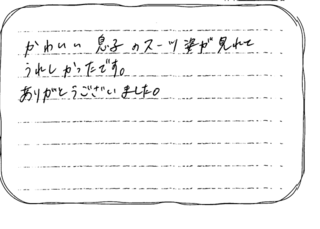 かわいい息子のスーツ姿が見れて
うれしかったです。
ありがとうございました。